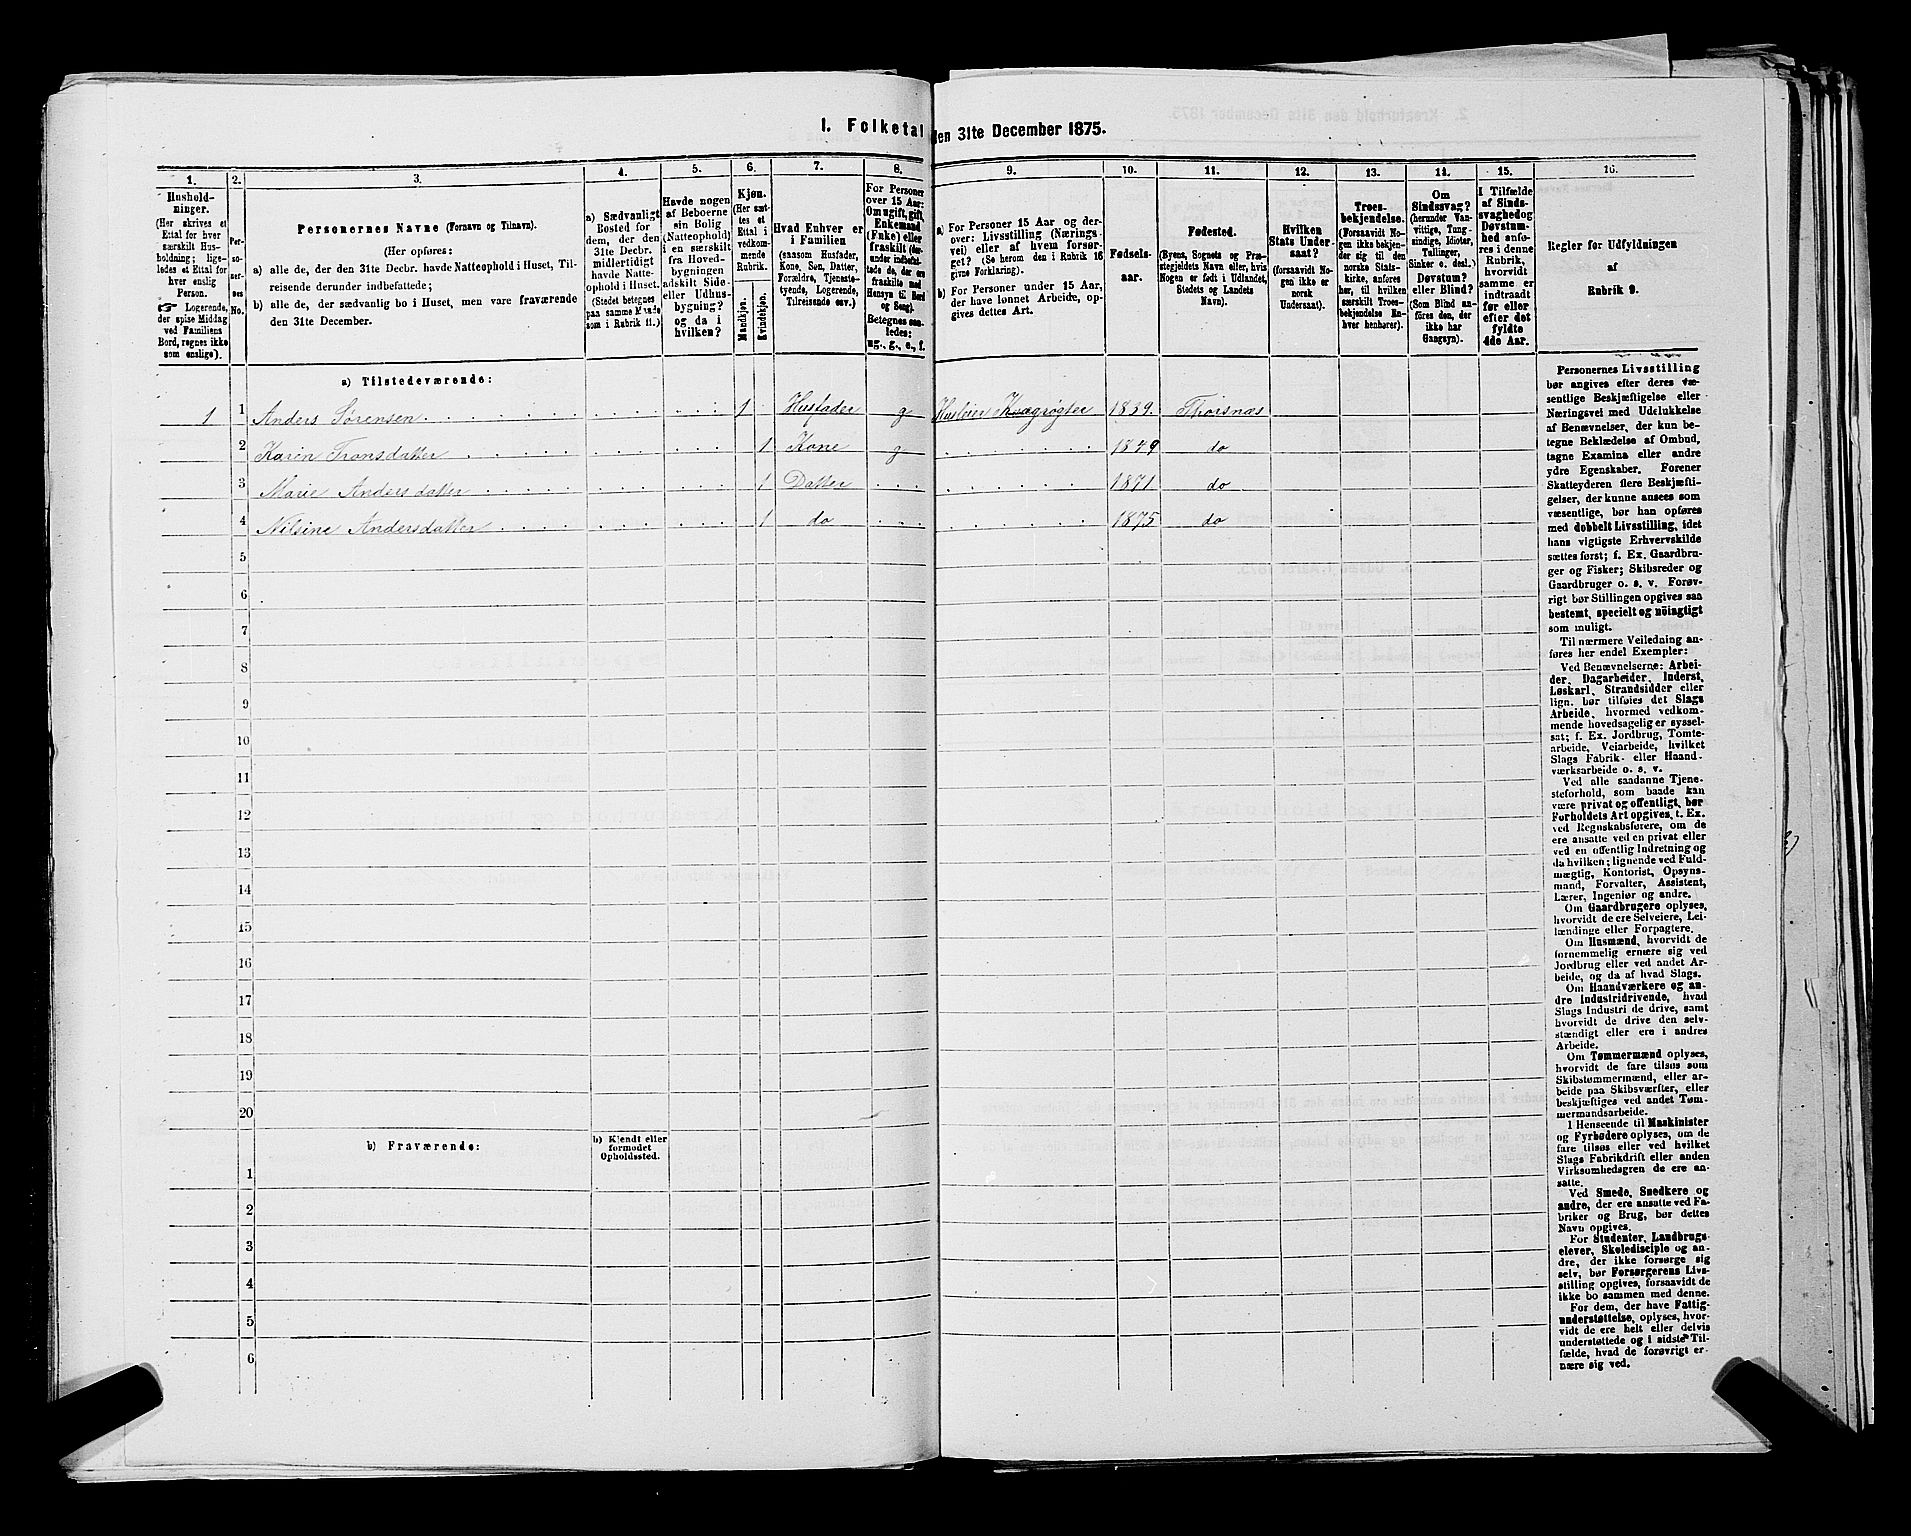 1. Folketal den 31te December 1875.
1.
Hushold-
ninger.
(Her skrives et
Ettal for hver
særskilt Hus-
holdning; lige-
ledes et Ettal for
hver enslig
Person.
☛ Logerende,
der spise Middag
ved Familiens
Bord, regnes ikke
som enslige).
2.
Per-
so-
ner-
nes
No.
3.
Personernes Navne (Fornavn og Tilnavn).
(Her opføres:
a) alle de, der den 31te Decbr. havde Natteophold i Huset, Til-
reisende derunder indbefattede;
b) alle de, der sædvanlig bo i Huset, men vare fraværende
den 31te December.
4.
a) Sædvanligt
Bosted for
dem, der den
31te Decbr.
midlertidigt
havde Natte-
ophold i Huset.
(Stedet betegnes
paa samme Maade
som i Rubrik 11.)
5.
Havde nogen
af Beboerne
sin Bolig
(Natteophold)
i en særskilt
fra Hoved-
bygningen
adskilt Side-
eller Udhus-
bygning?
og da i
hvilken?
6.
Kjøn.
(Her sæt-
tes et
Ettal i
vedkom-
mende
Rubrik.
Mandkjøn.
Kvindekjøn.
7.
Hvad Enhver er
i Familien
(saasom Husfader,
Kone, Søn, Datter,
Forældre, Tjeneste-
tyende, Logerende,
Tilreisende osv.)
8.
For Personer
over 15 Aar:
Om ugift, gift,
Enkemand
(Enke) eller
fraskilt (her-
under indbefat-
tede de, der ere
fraskilte med
Hensyn til Bord
og Seng).
Betegnes saa-
ledes:
ug., g., e., f.
9.
a) For Personer 15 Aar og der-
over: Livsstilling (Nærings-
vei) eller af hvem forsør-
get? (Se herom den i Rubrik 16
givne Forklaring).
b) For Personer under 15 Aar,
der have lønnet Arbeide, op-
gives dettes Art.
10.
Fødsels-
aar.
11.
Fødested.
(Byens, Sognets og Præ-
stegjeldets Navn eller, hvis
Nogen er født i Udlandet,
Stedets og Landets
Navn).
12.
Hvilken
Stats Under-
saat?
(forsaavidt No-
gen ikke er
norsk
Undersaat).
13.
Troes-
bekjendelse.
(Forsaavidt No-
gen ikke bekjen-
der sig til den
norske Stats-
kirke, anføres
her, til hvilken
særskilt Troes-
bekjendelse En-
hver henhører).
14.
Om
Sindssvag?
(herunder Van-
vittige, Tung-
sindige, Idioter,
Tullinger,
Sinker o. desl.)
Døvstum?
eller Blind?
(Som Blind an-
føres den, der
ikke har
Gangsyn).
15.
I Tilfælde
af Sinds-
svaghed og
Døvstum-
hed anfø-
res i denne
Rubrik,
hvorvidt
samme er
indtraadt
før eller
efter det
fyldte
4de Aar.
16.
Regler for Udfyldningen
af
Rubrik 9.
a) Tilstedeværende:
1 1 Anders Sørensen 1 Husfader g Husleier Kvægrøgter 1839. Thorsnæs
2 Karen Transdatter 1 Kone g 1849 do
3 Marie Andersdatter 1 Datter 1871 do
4 Nilsine Andersdatter 1 do 1875 do
5
6
7
8
9
10
11
12
13
14
15
16
17
18
19
20
b) Fraværende:
b) Kjendt eller
formodet
Opholdssted.
1
2
3
4
5
6
Personernes Livsstilling
bør angives efter deres væ-
sentlige Beskjæftigelse eller
Næringsvei med Udelukkelse
af Benævnelser, der kun be-
tegne Beklædelse af Ombud,
tagne Examina eller andre
ydre Egenskaber. Forener
Skatteyderen flere Beskjæfti-
gelser, der kunne ansees som
væsentlige, bør han opføres
med dobbelt Livsstilling, idet
hans vigtigste Erhvervskilde
sættes først; f. Ex. Gaardbru-
ger og Fisker; Skibsreder og
Gaardbruger o. s. v. Forøv-
rigt bør Stillingen opgives saa
bestemt, specielt og nøiagtigt
som muligt.
Til nærmere Veiledning an-
føres her endel Exempler:
Ved Benævnelserne: Arbei-
der, Dagarbeider, Inderst,
Løskarl, Strandsidder eller
lign. bør tilføies det Slags
Arbeide, hvormed vedkom-
mende hovedsagelig er syssel-
sat; f. Ex. Jordbrug, Tomte-
arbeide, Veiarbeide, hvilket
Slags Fabrik- eller Haand-
værksarbeide o. s. v.
Ved alle saadanne Tjene-
steforhold, som baade kan
være privat og offentligt, bør
Forholdets Art opgives, t. Ex.
ved Regnskabsførere, om de
ere ansatte ved en privat eller
ved en offentlig Indretning og
da hvilken; lignende ved Fuld-
mægtig, Kontorist, Opsyns-
mand, Forvalter, Assistent,
Lærer, Ingeniør og andre.
Om Gaardbrugere oplyses,
hvorvidt de ere Selveiere, Lei-
lændinge eller Forpagtere.
Om Husmænd, hvorvidt de
fornemmelig ernære sig ved
Jordbrug eller ved andet Ar-
beide, og da af hvad Slags.
Om Haandværkere og an-
dre Industridrivende, hvad
Slags Industri de drive, samt
hvorvidt de drive den selv-
stændigt eller ere i andres
Arbeide.
Om Tømmermænd oplyses,
hvorvidt de fare tilsøs som
Skibstømmermænd, eller ar-
beide paa Skibsværfter, eller
beskjæftiges ved andet Tøm-
mermandsarbeide.
I Henseende til Maskinister
og Fyrbødere oplyses, om de
fare tilsøs eller ved hvilket
Slags Fabrikdrift eller anden
Virksomhedsgren de ere an-
satte.
Ved Smede, Snedkere og
andre, der ere ansatte ved Fa-
briker og Brug, bør dettes
Navn opgives.
For Studenter, Landbrugs-
elever, Skoledisciple og an-
dre, der ikke forsørge sig
selv, bør Forsørgerens Livs-
stilling opgives, forsaavidt de
ikke bo sammen med denne.
For dem, der have Fattig-
understøttelse, oplyses, hvor-
vidt de ere helt eller delvis
understøttede og i sidste Til-
fælde, hvad de forøvrigt er-
nære sig ved.